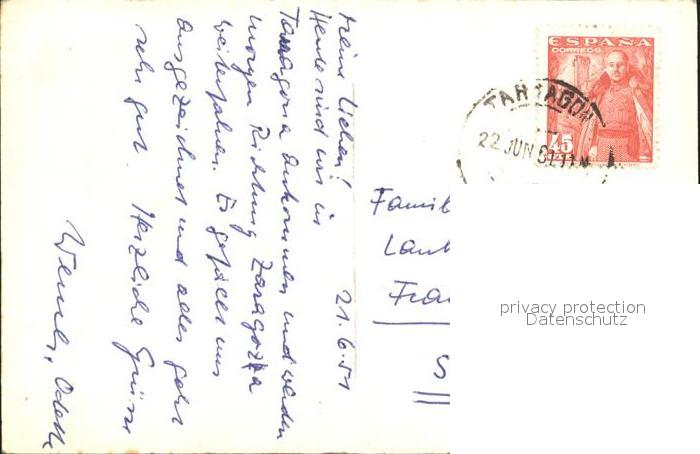 21.6.51
Meine Lieben!
Heute sind wir in
Tarragona ankommen und werden
morgen Richtung Zaragoza
weiterfahren. Es gefällt uns
ausgezeichnet und alles geht
sehr gut. Herzliche Grüsse
Odette
ESPAÑA
CORREOS
45
TARRAGONA
22 JUN 51
Famil
Fra
S
privacy protection
Datenschutz